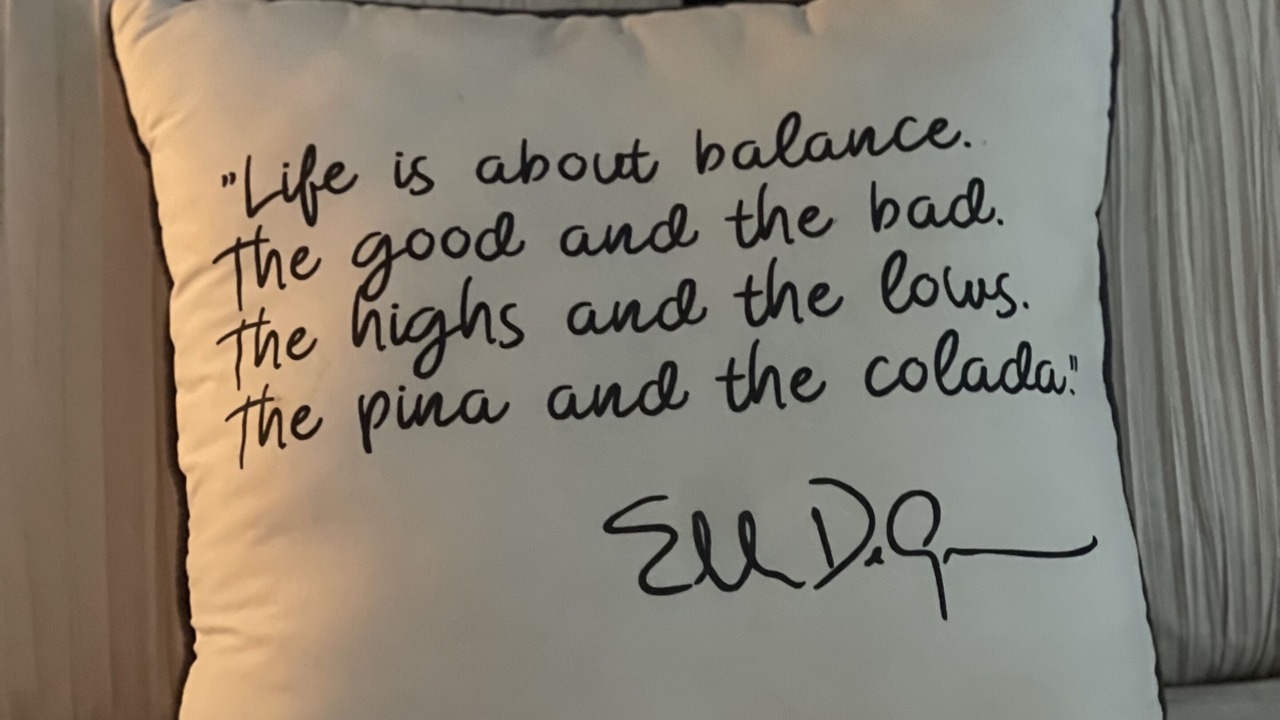 "Life is about balance.
The good and the bad.
The highs and the lows.
The pina and the colada."